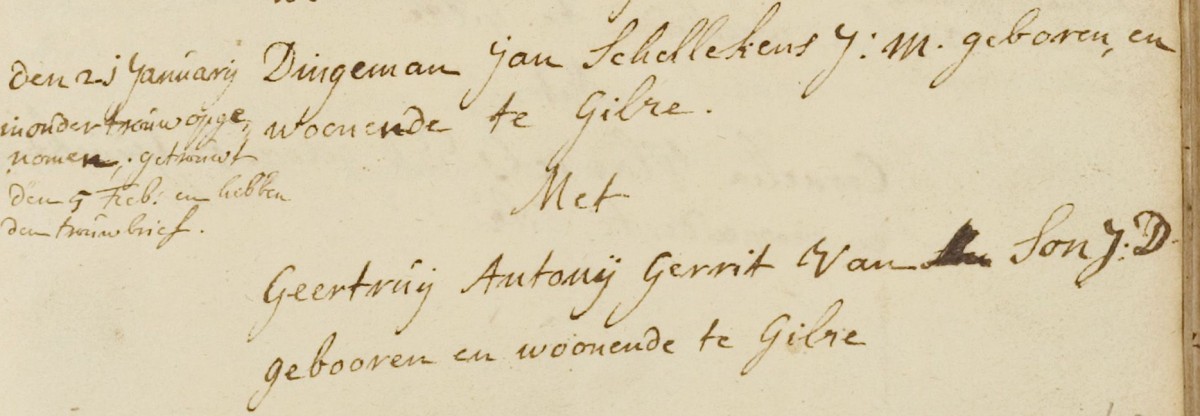 den 21 January
in ondertrouw opge,
nomen, getrouwt
den 5 Feb: en hebben
den trouwbrief.
Dingeman Jan Schellekens J: M. geboren, en
woonende te Gilze.
Met
Geertruij Antonij Gerrit Van Son J: D
gebooren en woonende te Gilze